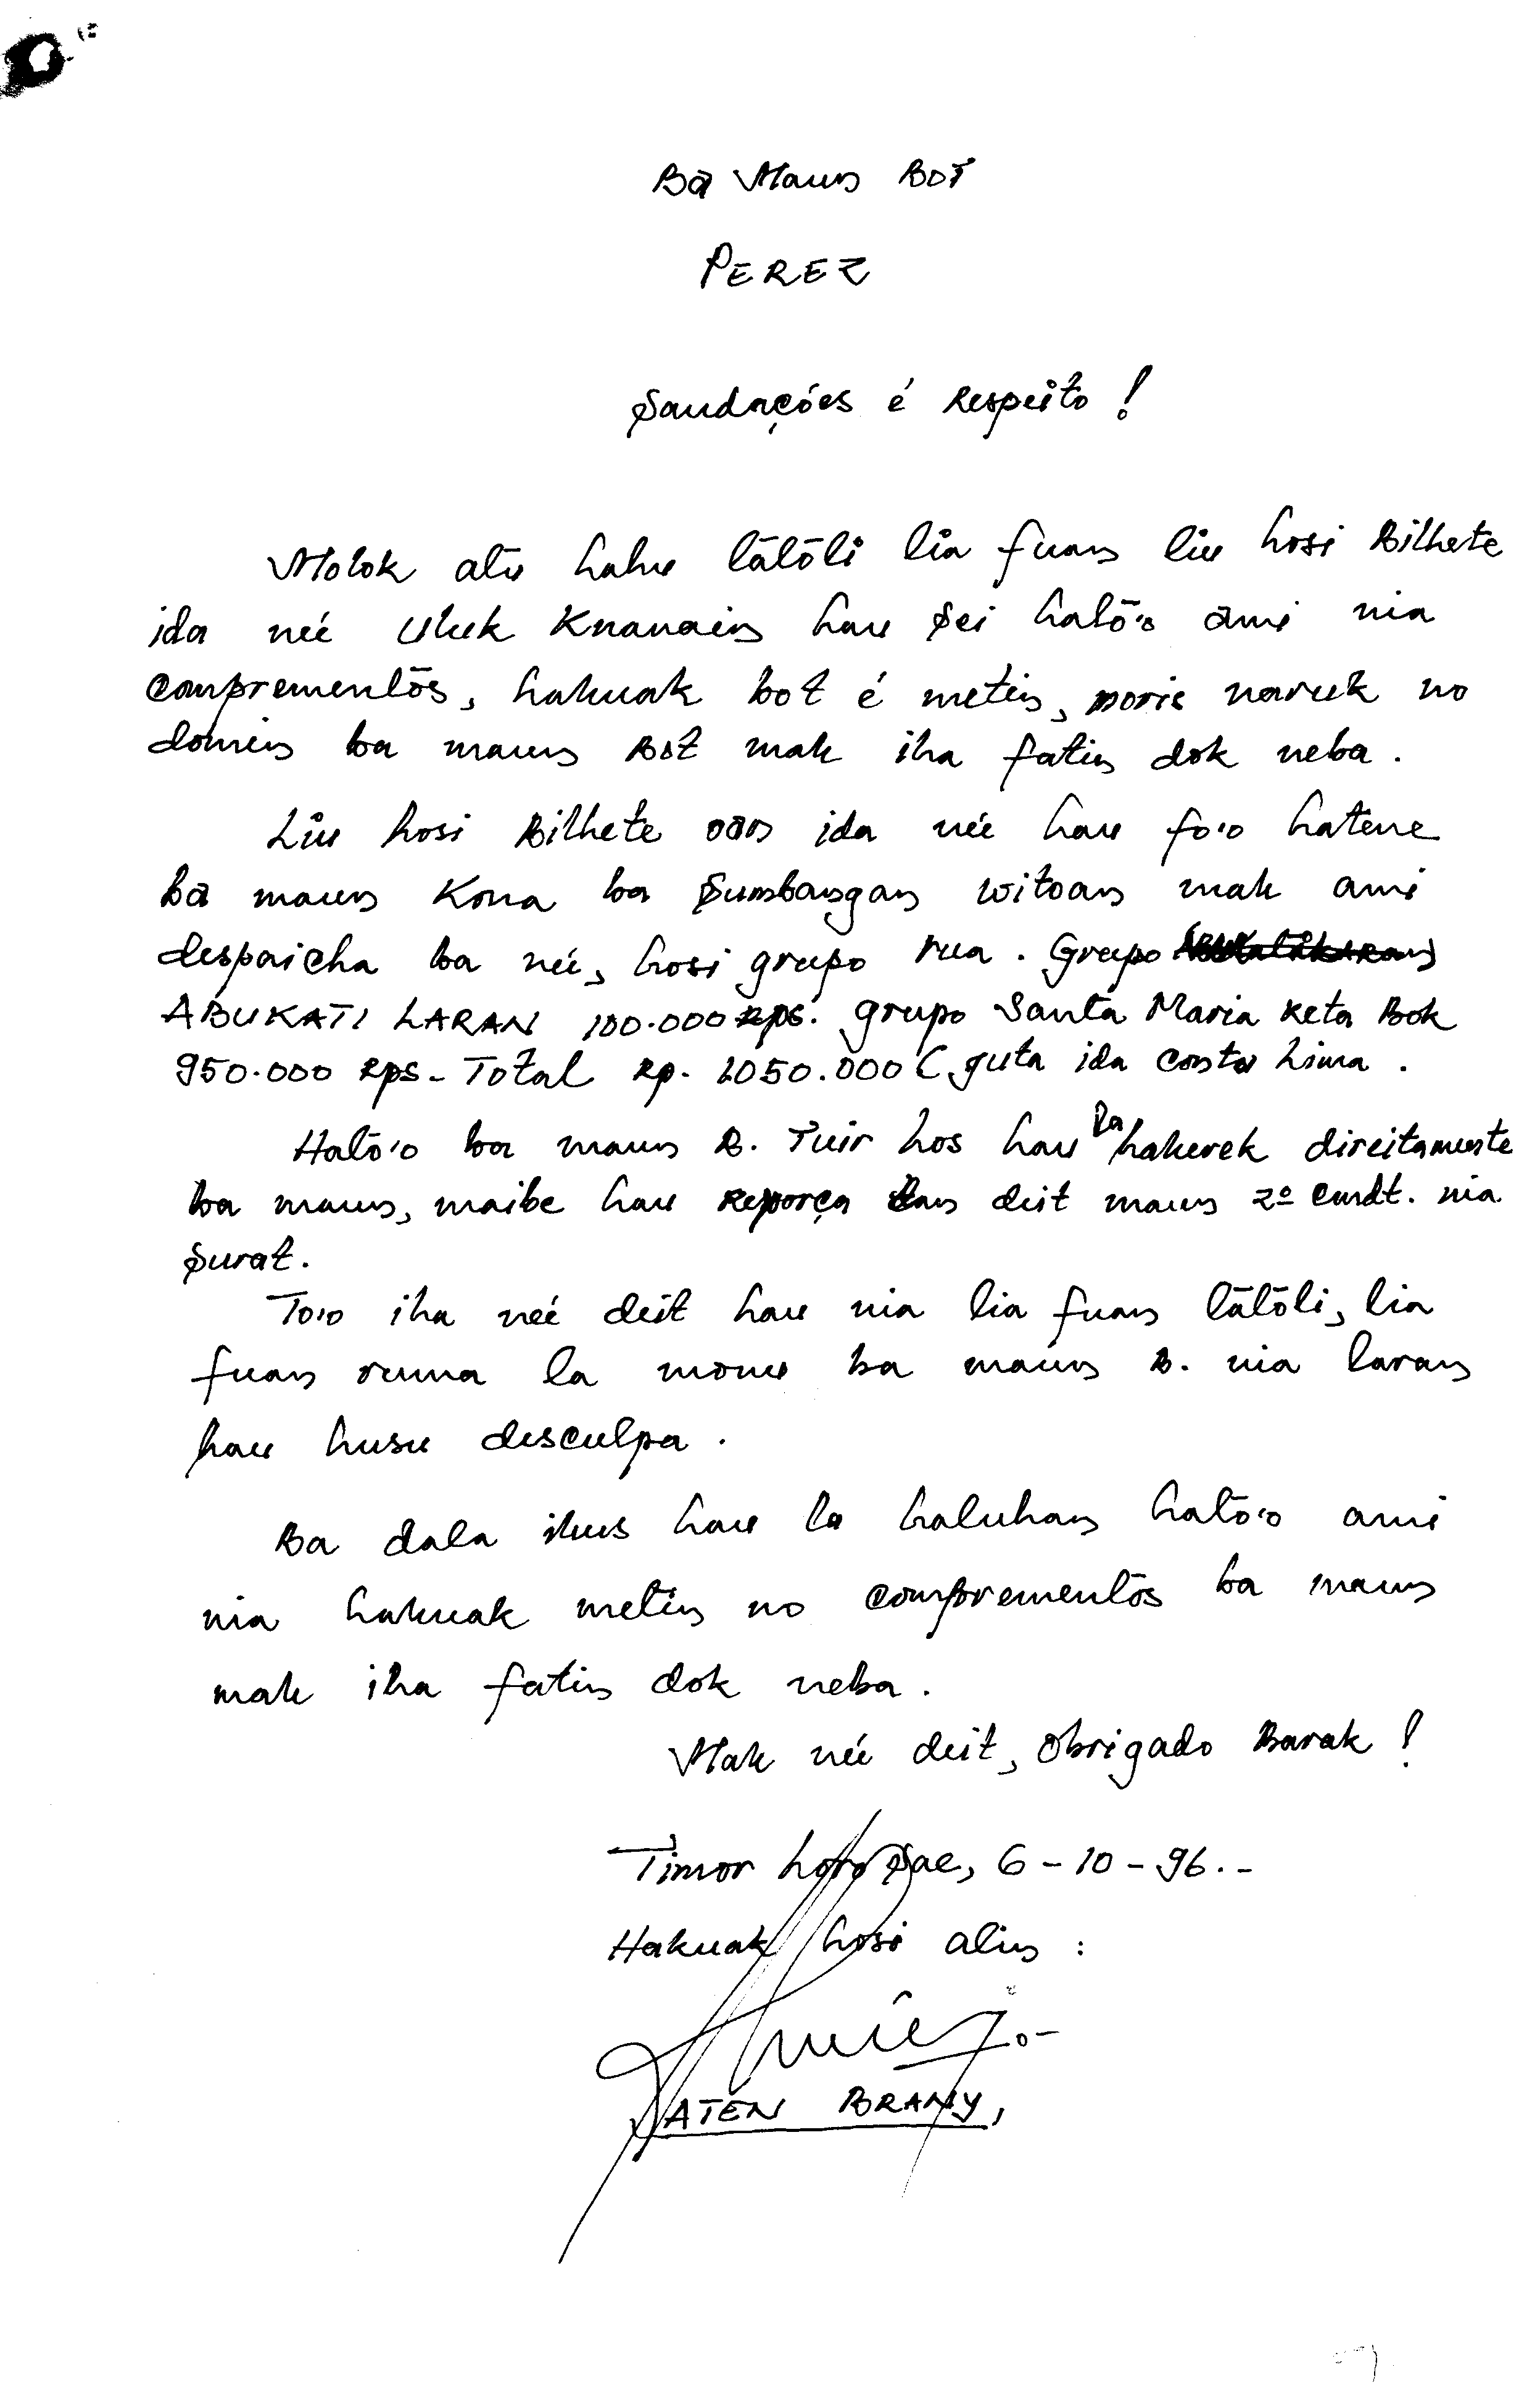 Ba Maun Bot
PEREZ
Saudações é Respeito !
Molok atu hahu lātōli lia fuan liu hosi Bilhete
ida neé uluk Knanain hau sei hatō'o ami nia
comprementōs, hakuak bot é metin, moris naruk no
domin ba maun Bot mak iha fatin dok neba.
Liu hosi Bilhete oan ida neé hau fo'o hatene
ba maun Kona ba Sumbangan witoan mak ami
despaicha ba neé, hosi grupo rua. Grupo
ABUKATI LARAN 100.000 rps. grupo Santa Maria keta Bok
950.000 rps. Total rp. 1050.000 (juta ida costa Lima.
Hatō'o ba maun B. Tuir hos hau la hakerek direitamente
ba maun, maibe hau reporça dan deit maun 2º Cmdt. nia
surat.
To'o iha neé deit hau nia lia fuan lātōli, lia
fuan ruma la monu ba maun B. nia laran
hau husu desculpa.
Ba dala ikus hau la haluhan hatō'o ami
nia hakuak metin no comprementōs ba maun
mak iha fatin dok neba.
Mak neé deit, Obrigado Barak !
Timor Loro Sae, 6-10-96.-
Hakuak hosi alin :
DATEN BRANY,